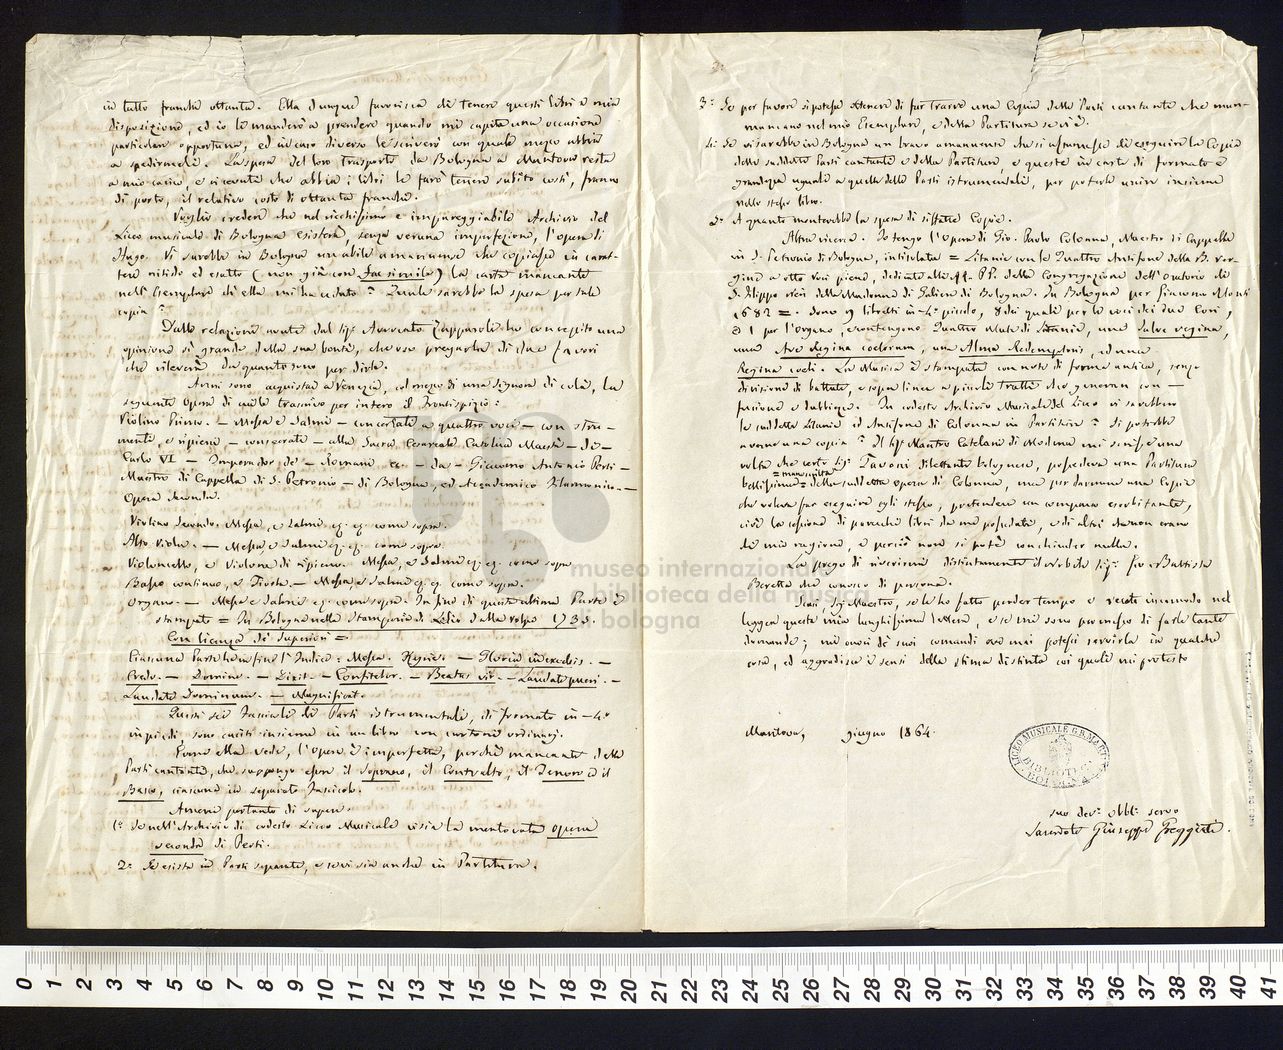 in tutto franchi ottanta. Ella dunque favorisca di tenere questi libri a mia
disposizione, ed io le manderò a prendere quando mi capita una occasione
particolare opportuna, ed in caso diverso le scriverò con quale mezzo abbia
a spedirmeli. La spesa del loro trasporto da Bologna a Mantova resta
a mio carico, e ricevute che abbia i libri le farò tenere subito costì, franco
di porto, il relativo costo di ottanta franchi.
Voglio credere che nel ricchissimo e impareggiabile Archivio del
Liceo musicale di Bologna esisterà, senza veruna imperfezione, l'opera di
Vi sarebbe in Bologna un abile amanuense che copiasse in carat-
tere nitido ed esatto (non già con facsimile) la carta mancante
nell'Esemplare di ella mi ha ceduto? Quale sarebbe la spesa per tale
copia?
Dalle relazioni avute dal Sigr. Avvocato Zapparoli ho concepito una
opinione sì grande della sua bontà, che oso pregarla di due favori
che rileverà da quanto sono per dirle.
Anni sono acquistai a Venezia, col mezzo di una signora di colà, la
seguente Opera di cui le trascrivo per intero il Frontispizio:
Violino Primo. — Messa e Salmi — concertati a quattro voci — con stru-
menti, e ripieni — consecrati — alla Sacra Cesarea Cattolica Maestà — di —
Carlo VI — Imperadore de' — Romani ec. — da — Giacomo Antonio Perti —
Maestro di Cappella di S. Petronio — di Bologna, ed Accademico Filarmonico. —
Opera Seconda.
Violino Secondo. Messa, e Salmi ec. ec. come sopra.
Alto Viola. — Messa e Salmi ec. ec. come sopra.
Violoncello, e Violone di ripieno. Messa, e Salmi ec. ec. come sopra
Basso continuo, e Tiorba. — Messa, e Salmi ec. ec. come sopra.
Organo. — Messa e Salmi ec. come sopra. In fine di quest'ultima Parte è
stampato = In Bologna nella Stamperia di Lelio dalla Volpe 1735.
Con licenza de' Superiori =
Ciascuna Parte ha in fine l'Indice: Messa. Kyrie. — Gloria in excelsis. —
Credo. — Domine. — Dixit. — Confitebor. — Beatus vir. — Laudate pueri. —
Laudate Dominum. — Magnificat.
Questi sei Fascicoli di Parti istrumentali, di Formato in-4°
in piedi sono uniti insieme in un libro con cartoni ordinarj.
Come ella vede, l'opera è imperfetta, perchè mancante delle
Parti cantanti, che suppongo essere il Soprano, il Contralto, il Tenore e il
Basso, ciascuno in separato Fascicolo.
Amerei pertanto di sapere
1° Se nell'Archivio di codesto Liceo Musicale vi sia la mentovata opera
seconda di Perti.
2° Se esista in Parti separate, e se vi sia anche in Partitura.
3° Se per favore si potesse ottenere di far trarre una Copia delle Parti cantanti che man-
mancano nel mio Esemplare, e della Partitura se vi è.
4° Se vi sarebbe in Bologna un bravo amanuense che si assumesse di eseguire la Copia
delle suddette Parti cantanti e della Partitura, e queste in carta di formato e
grandezza uguale a quella delle Parti istrumentali, per poterle unire insieme
nello stesso libro.
5° A quanto monterebbe la spesa di siffatte Copie.
Altra ricerca. Io tengo l'Opera di Gio. Paolo Colonna, Maestro di Cappella
in S. Petronio di Bologna, intitolata = Litanie con le Quattro Antifone della B. Ver-
gine a otto voci piene, dedicate alli PP. della Congregazione dell'Oratorio di
S. Filippo Neri della Madonna di Galiera di Bologna. In Bologna per Giacomo Monti
1682 =. Sono 9 libretti in-4° piccolo, 8 dei quali per le voci dei due Cori,
e 1 per l'organo, e contengono Quattro Mute di Litanie, una Salve regina,
una Ave Regina coelorum, una Alma Redemptoris, ed una
Regina coeli. La Musica è stampata con note di forma antica, senza
divisione di battute, e sopra linee a piccoli tratti che generan con —
fusione e dubbiezze. In codesto Archivio Musicale del Liceo vi sarebbero
le suddette Litanie ed Antifone di Colonna in Partitura? Si potrebbe
averne una copia? Il Sigr. Maestro Catelani di Modena mi scrisse una
volta che certo Sigr. Tavoni dilettante bolognese, possedeva una Partitura
= manoscritta
bellissima = delle suddette opera di Colonna, ma per darmene una Copia
che voleva far eseguire egli stesso, pretendeva un compenso esorbitante,
cioè la cessione di parecchi libri da me posseduti, e di altri che non erano
di mia ragione, e perciò non si potè conchiuder nulla.
La prego di riverirmi distintamente il Sigr. Gio. Battista
Beretta che conosco di persona.
Scusi, Sigr. Maestro, se le ho fatto perder tempo e recato incomodo nel
leggere questa mia lunghissima lettera, e se mi sono permesso di farle tante
domande; mi onori de' suoi comandi ove mai potessi servirla in qualche
cosa, ed aggradisca i sensi della stima distinta coi quali mi protesto
Mantova, giugno 1864.
LICEO MUSICALE G.B. MARTINI
BIBLIOTECA
BOLOGNA
suo dev. obbl. servo
Sacerdote Giuseppe Greggiati.
museo internazionale
e biblioteca della musica
di bologna
0 1 2 3 4 5 6 7 8 9 10 11 12 13 14 15 16 17 18 19 20 21 22 23 24 25 26 27 28 29 30 31 32 33 34 35 36 37 38 39 40 41